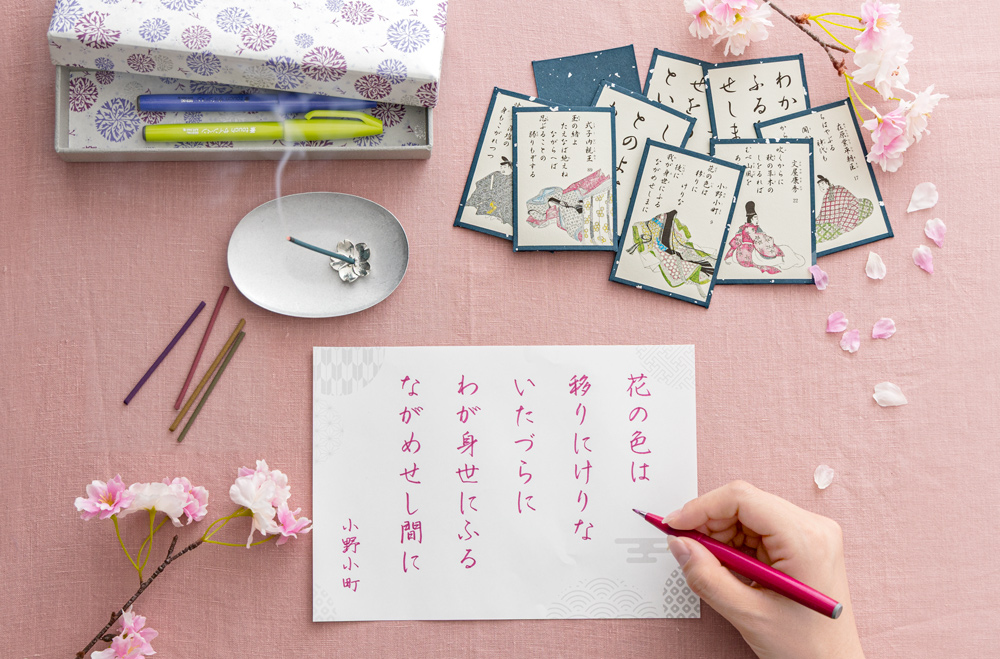 花の色は
移りにけりな
いたづらに
わが身世にふる
ながめせし間に
小野小町
式子内親王
玉の緒よ
たえなば絶えね
ながらへば
忍ぶることの
弱りもぞする
小野小町
花の色は
移りに
けりな
徒に
我が身世にふる
ながめせしまに
文屋康秀
吹くからに
秋の草木の
しをるれば
むべ山風を
わか
ふる
せしま
在原業平朝臣
ちはやぶる
神代も